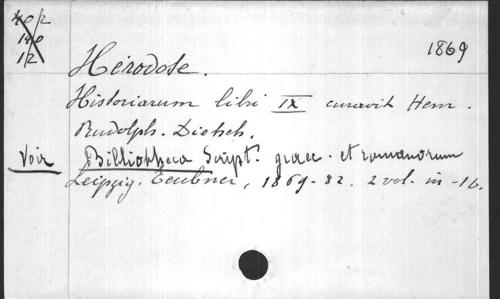 40/2
140
1/2
1869
Hérodote.
Historiarum libri IX curavit Henr.
Rudolph. Dietsch.
Voir Bibliotheca Script. graec. et romanorum
Leipzig. Teubner, 1869-82. 2 vol. in-16.